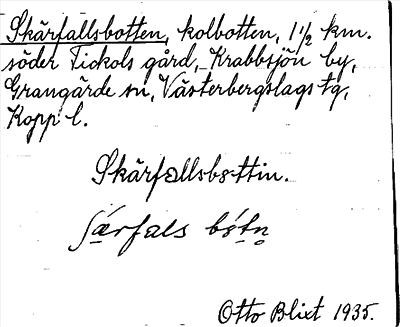 Skärfallsbotten, kolbotten, 1 1/2 km.
söder Tickols gård, Krabbsjön by,
Grangärde sn, Västerbergslags tg,
Kopp l.
Skärfallsbøttin.
Otto Blixt 1935.